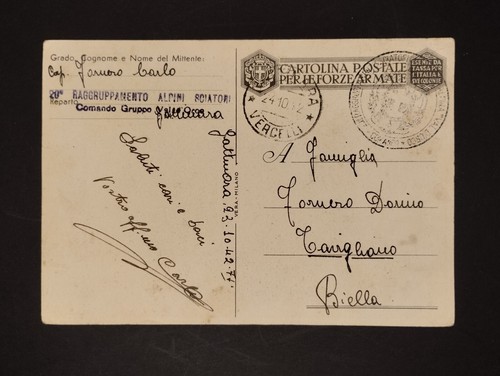 Grado, Cognome e Nome del Mittente:
Cap. Fornero Carlo
20° RAGGRUPPAMENTO ALPINI SCIATORI
Reparto
Comando Gruppo
Gattinara 23.10.42.XX.
Saluti cari e baci
Vostro aff.mo Carlo
CARTOLINA POSTALE
PER LE FORZE ARMATE
ESENTE DA
TASSA PER
L'ITALIA E
LE COLONIE
24.10.42
VERCELLI
A Famiglia
Fornero Dorino
Tavigliano
Biella